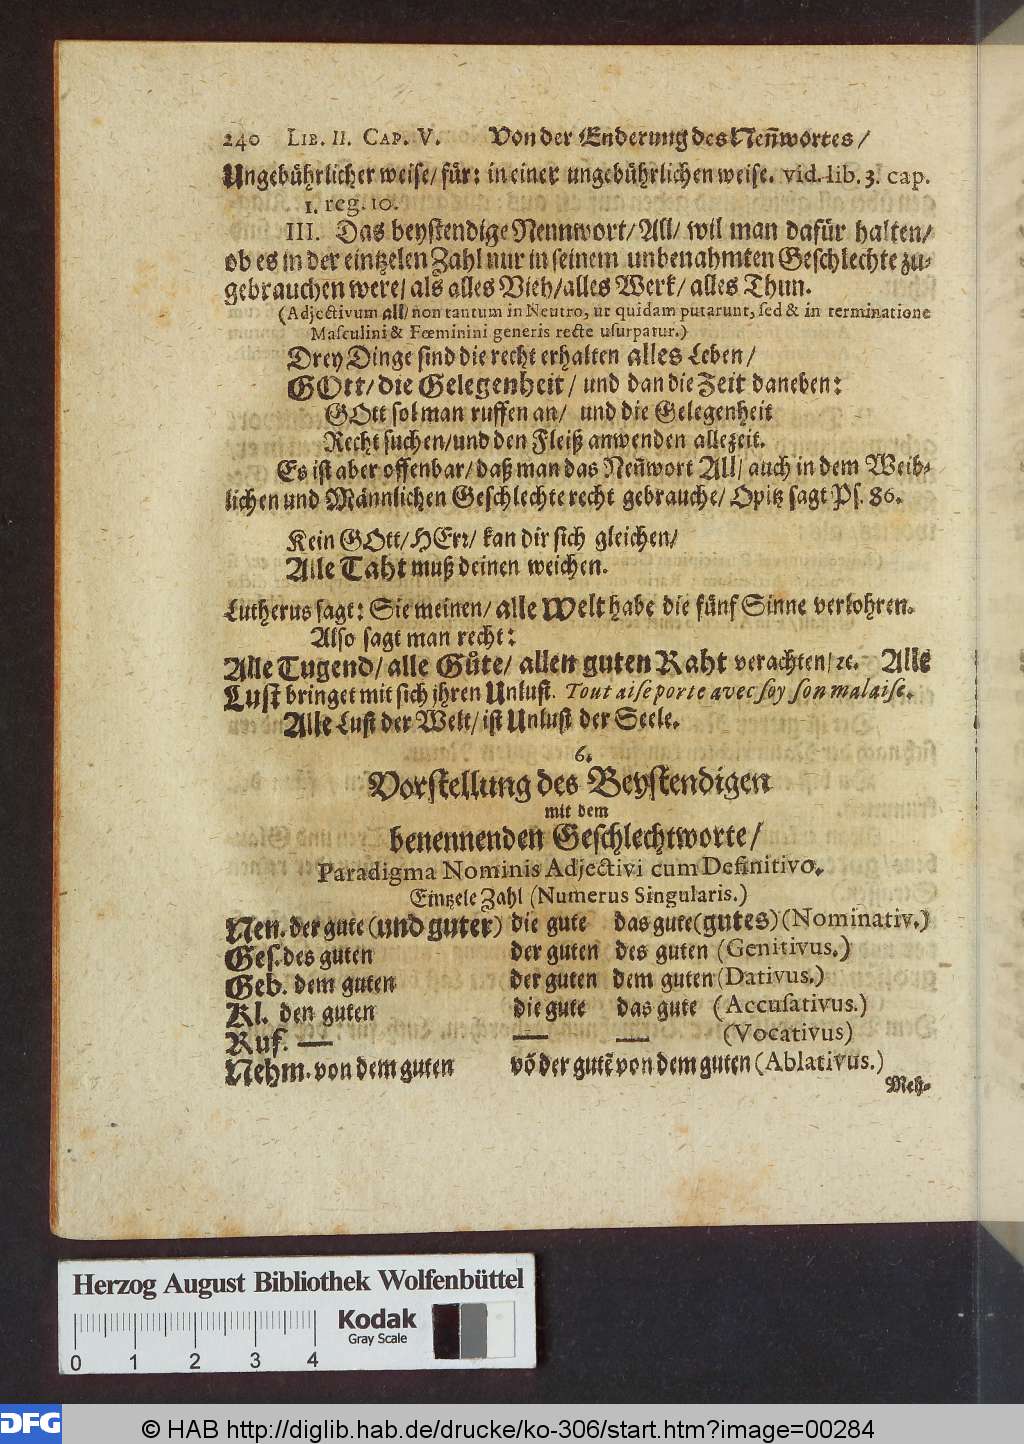 240 LIB. II. CAP. V. Von der Enderung des Neñwortes /
Ungebührlicher weise/ für: in einer ungebührlichen weise. vid. lib. 3. cap.
1. reg. 10.
III. Das beystendige Nennwort/ All/ wil man dafür halten/
ob es in der eintzelen Zahl nur in seinem unbenahmten Geschlechte zu-
gebrauchen were/ als alles Vieh/ alles Werk/ alles Thun.
(Adjectivum all/ non tantum in Neutro, ut quidam putarunt, sed & in terminatione
Masculini & Fœminini generis recte usurpatur.)
Drey Dinge sind die recht erhalten alles Leben /
GOtt/ die Gelegenheit / und dan die Zeit daneben:
GOtt sol man ruffen an/ und die Gelegenheit
Recht suchen/ und den Fleiß anwenden allezeit.
Es ist aber offenbar/ daß man das Neñwort All/ auch in dem Weib-
lichen und Männlichen Geschlechte recht gebrauche/ Opitz sagt Ps. 86.
Kein GOtt/ HErr/ kan dir sich gleichen/
Alle Taht muß deinen weichen.
Lutherus sagt: Sie meinen/ alle Welt habe die fünf Sinne verlohren.
Also sagt man recht:
Alle Tugend/ alle Güte/ allen guten Raht verachten/ ꝛc. Alle
Lust bringet mit sich jhren Unlust. Tout aise porte avec soy son malaise.
Alle Lust der Welt/ ist Unlust der Seele.
6.
Vorstellung des Beystendigen
mit dem
benennenden Geschlechtworte/
Paradigma Nominis Adjectivi cum Definitivo.
Eintzele Zahl (Numerus Singularis.)
Nen. der gute (und guter) die gute das gute (gutes) (Nominativ.)
Ges. des guten der guten des guten (Genitivus.)
Geb. dem guten der guten dem guten (Dativus.)
Kl. den guten die gute das gute (Accusativus.)
Ruf. — — — (Vocativus)
Nehm. von dem guten võ der gutẽ von dem guten (Ablativus.)
Meh-
Herzog August Bibliothek Wolfenbüttel
Kodak
Gray Scale
0 1 2 3 4
DFG
© HAB http://diglib.hab.de/drucke/ko-306/start.htm?image=00284